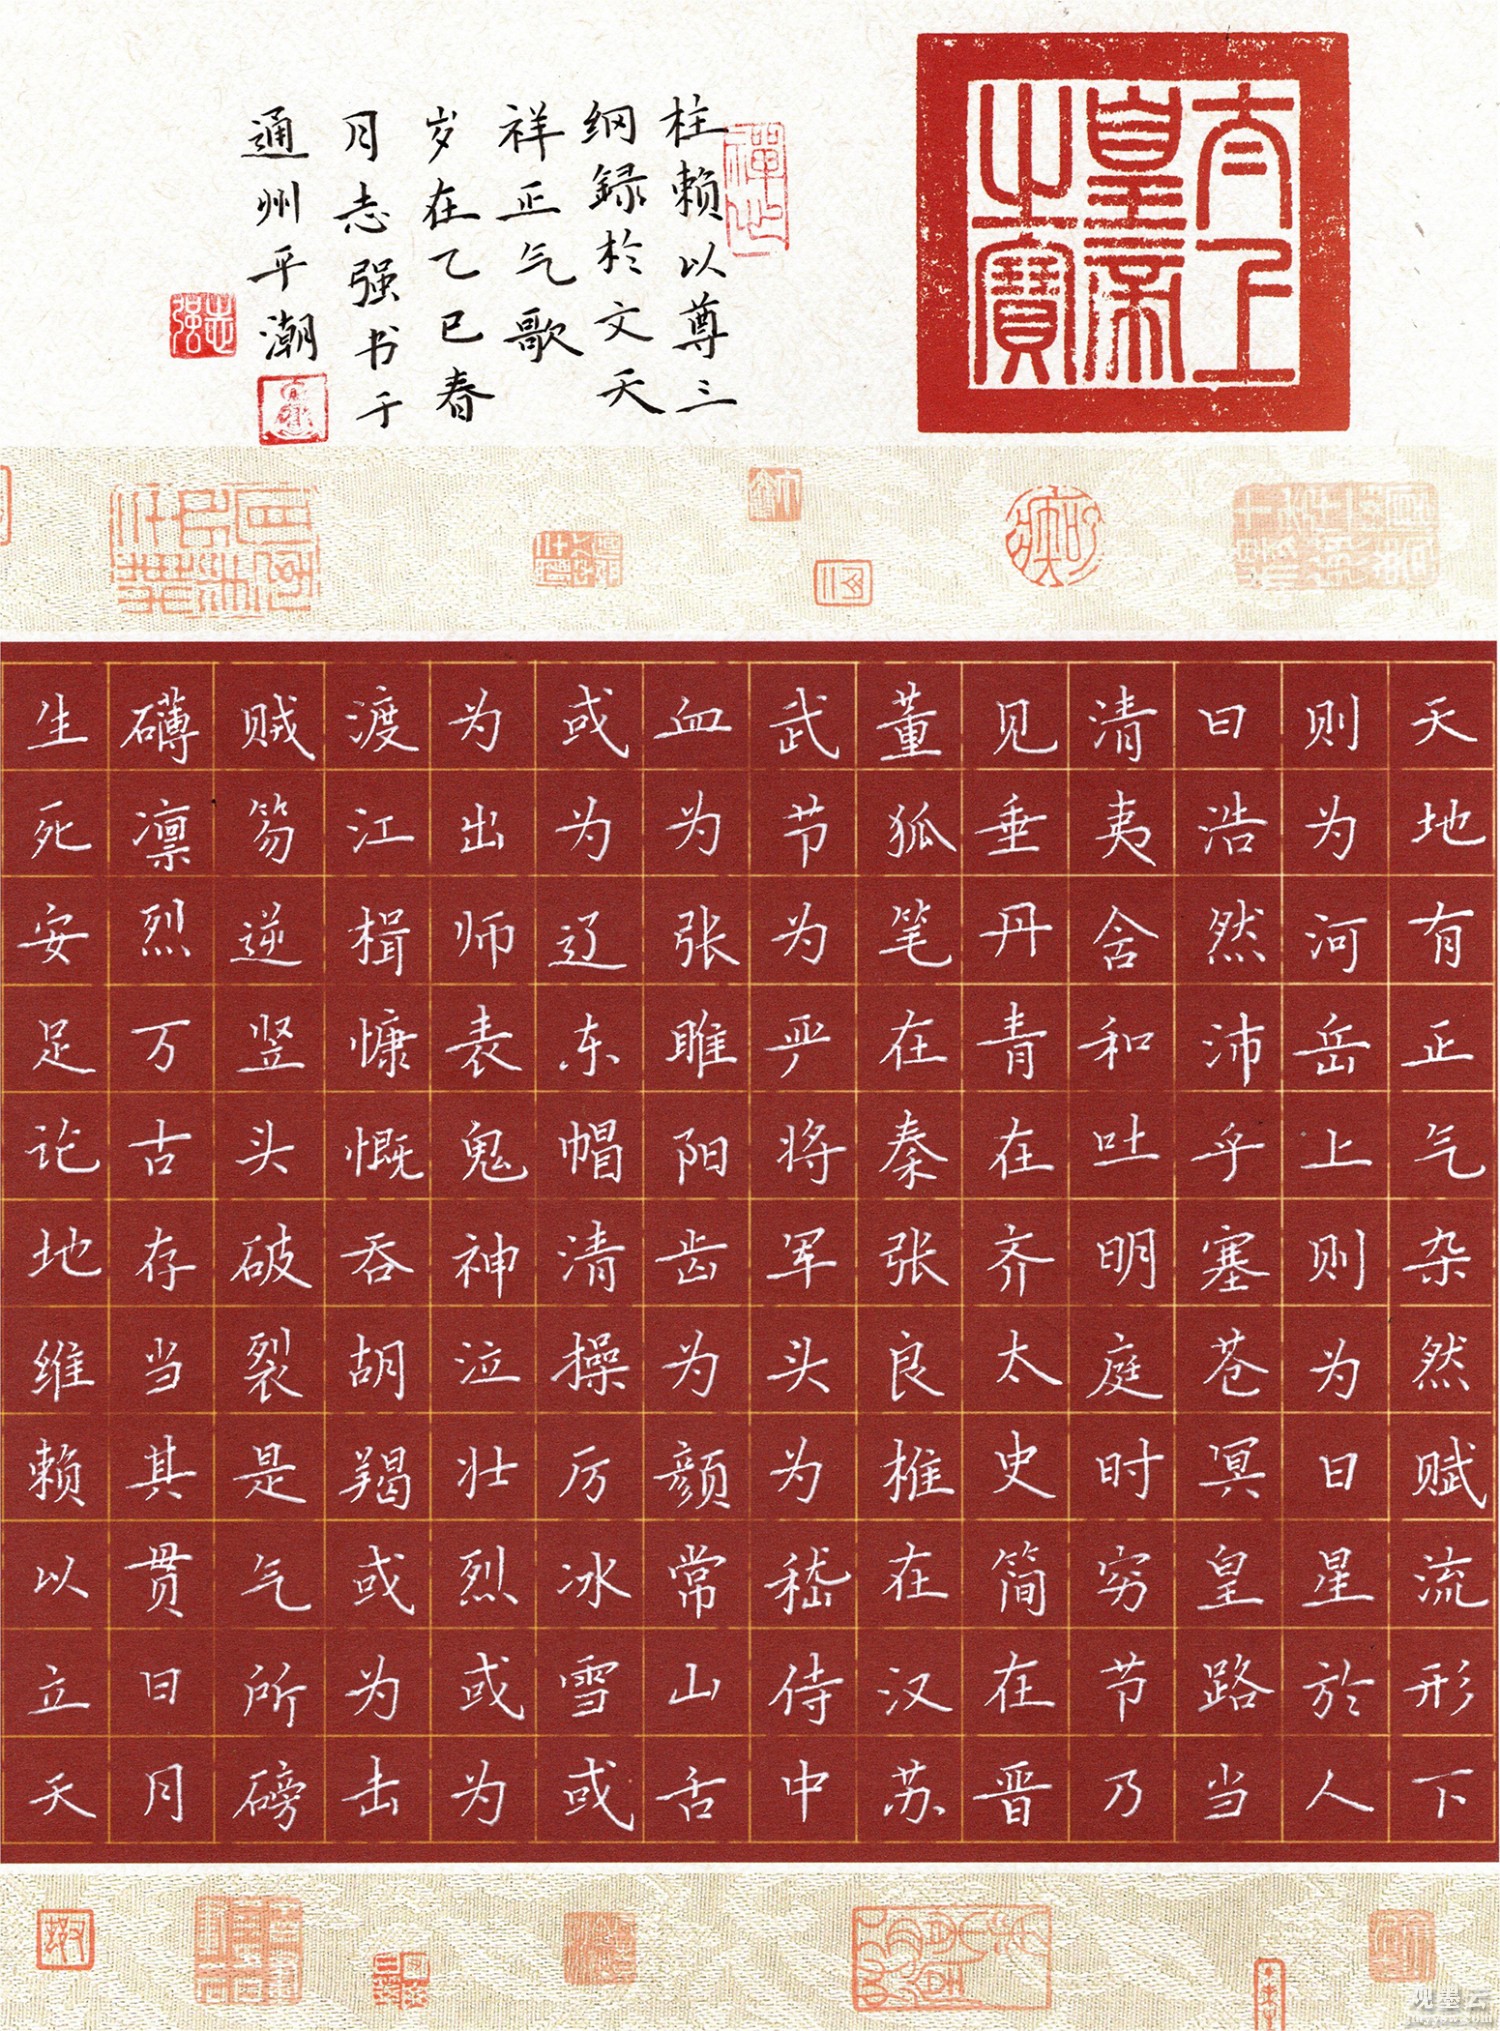 太上
皇帝
之寶
天地有正气杂然赋流形下
则为河岳上则为日星於人
曰浩然沛乎塞苍冥皇路当
清夷含和吐明庭时穷节乃
见垂丹青在齐太史简在晋
董狐笔在秦张良椎在汉苏
武节为严将军头为嵇侍中
血为张睢阳齿为颜常山舌
或为辽东帽清操厉冰雪或
为出师表鬼神泣壮烈或为
渡江楫慷慨吞胡羯或为击
贼笏逆竖头破裂是气所磅
礴凛烈万古存当其贯日月
生死安足论地维赖以立天
柱赖以尊三
纲録於文天
祥正气歌
岁在乙巳春
月志强书于
通州平潮
志强